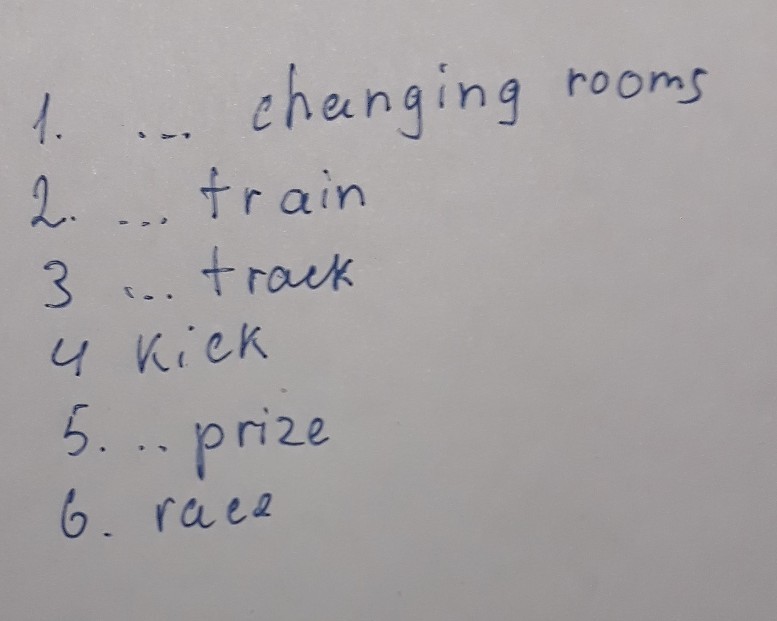 1. ... changing rooms
2. ... train
3 ... track
4 kick
5. .. prize
6. race